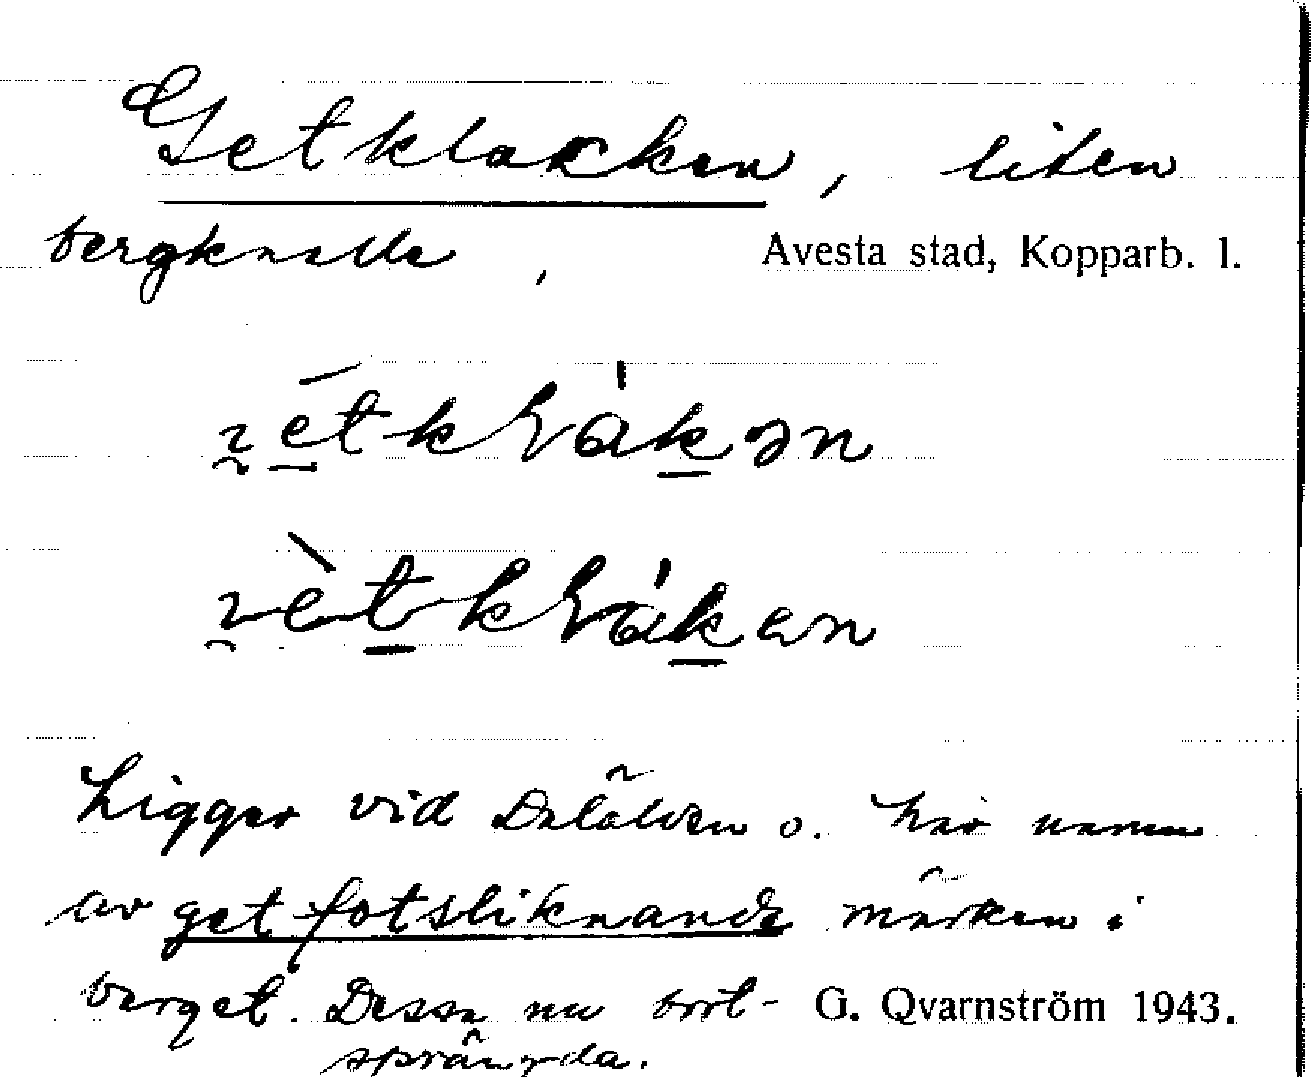 Getklacken, liten
bergknalle, Avesta stad, Kopparb. l.
Ligger vid Dalälven o. har namn
av getfotsliknande märken i
berget. Dessa nu bort- G. Qvarnström 1943.
sprängda.